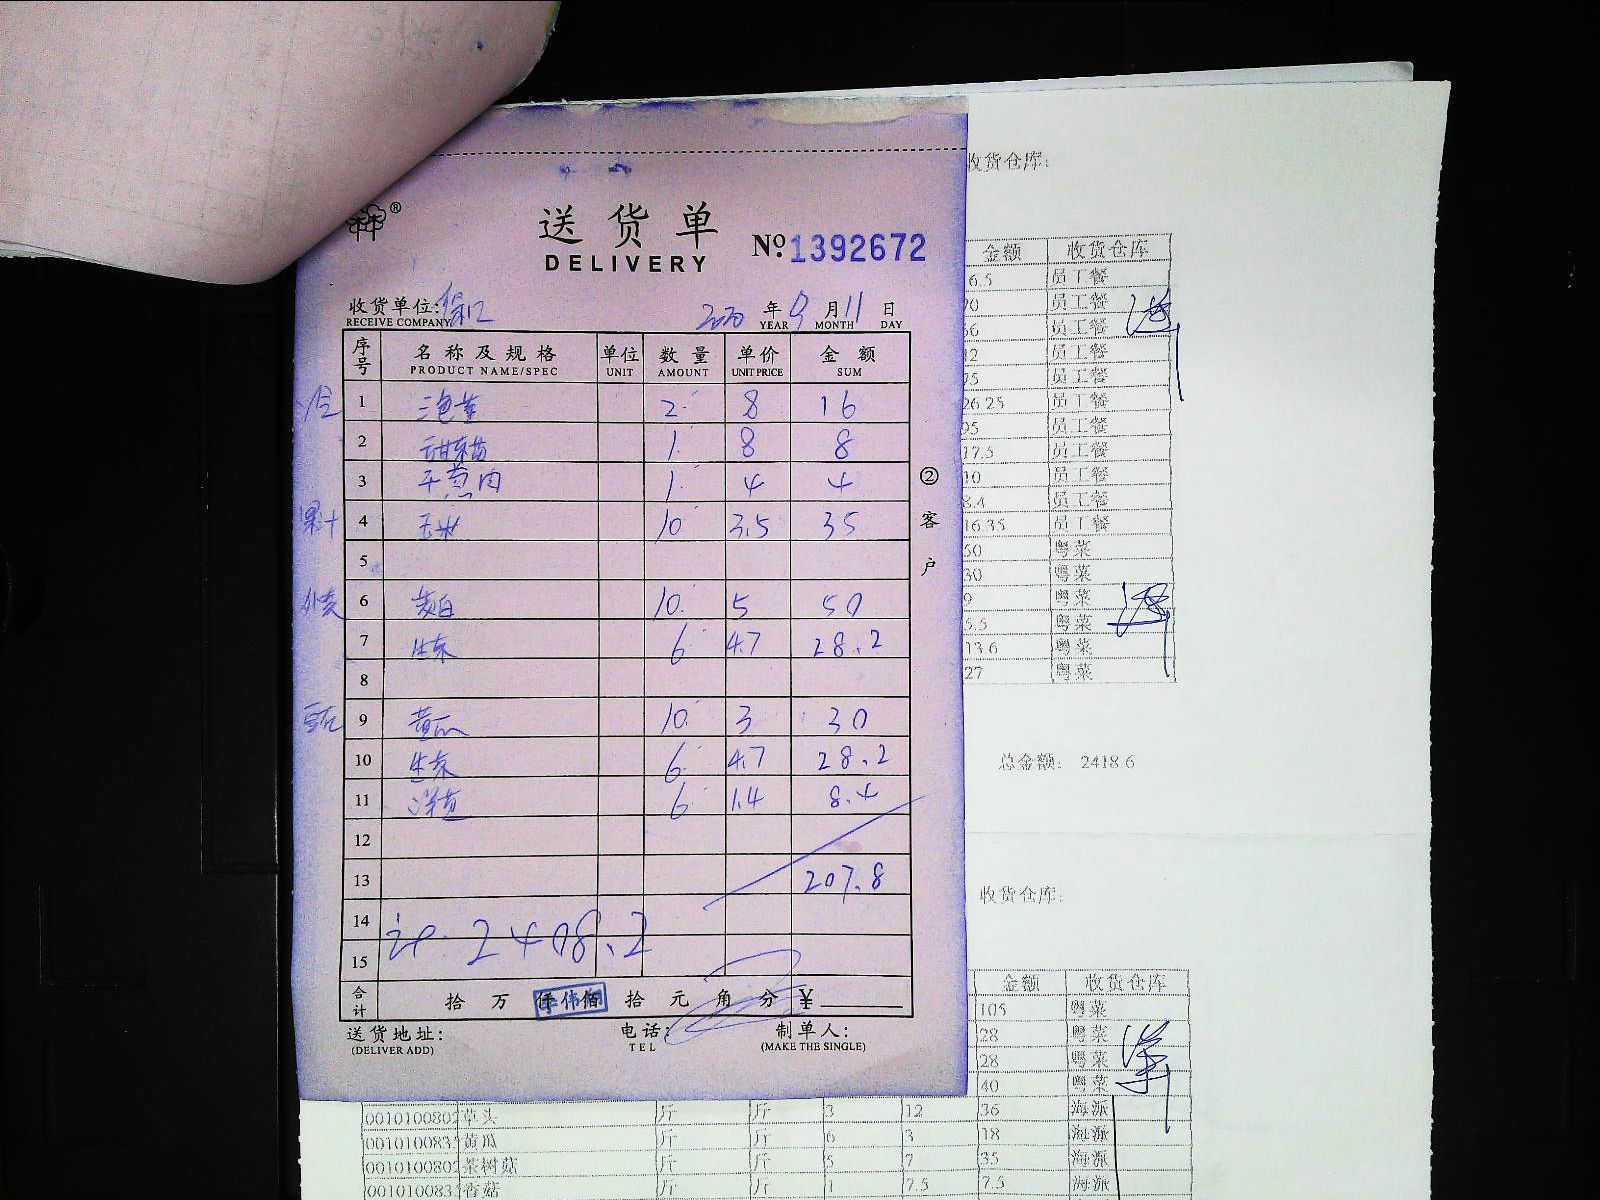 送货单
DELIVERY
№ 1392672
收货单位:
RECEIVE COMPANY
2020 年 9 月 11 日
YEAR MONTH DAY
序号 名称及规格 单位 数量 单价 金额
PRODUCT NAME/SPEC UNIT AMOUNT UNIT PRICE SUM
1 2 8 16
2 1 8 8
3 1 4 4
果汁 4 玉米 10 3.5 35
5
外卖 6 10 5 50
7 生菜 6 4.7 28.2
8
9 黄瓜 10 3 30
10 生菜 6 4.7 28.2
11 洋葱 6 1.4 8.4
12
13 207.8
14
计 2408.2
15
合计 拾 万 仟 佰 拾 元 角 分 ¥
送货地址:
(DELIVER ADD)
电话:
TEL
制单人:
(MAKE THE SINGLE)
②客户
收货仓库:
金额 收货仓库
6.5 员工餐
70 员工餐
66 员工餐
2 员工餐
75 员工餐
26.25 员工餐
95 员工餐
17.5 员工餐
10 员工餐
8.4 员工餐
16.35 员工餐
50 粤菜
30 粤菜
9 粤菜
5.5 粤菜
13.6 粤菜
27 粤菜
总金额: 2418.6
收货仓库:
金额 收货仓库
105 粤菜
28 粤菜
28 粤菜
40 粤菜
0010100802 草头 斤 斤 3 12 36 海派
001010083 黄瓜 斤 斤 6 3 18 海派
0010100802 茶树菇 斤 斤 5 7 35 海派
001010083 香菇 斤 斤 1 7.5 7.5 海派